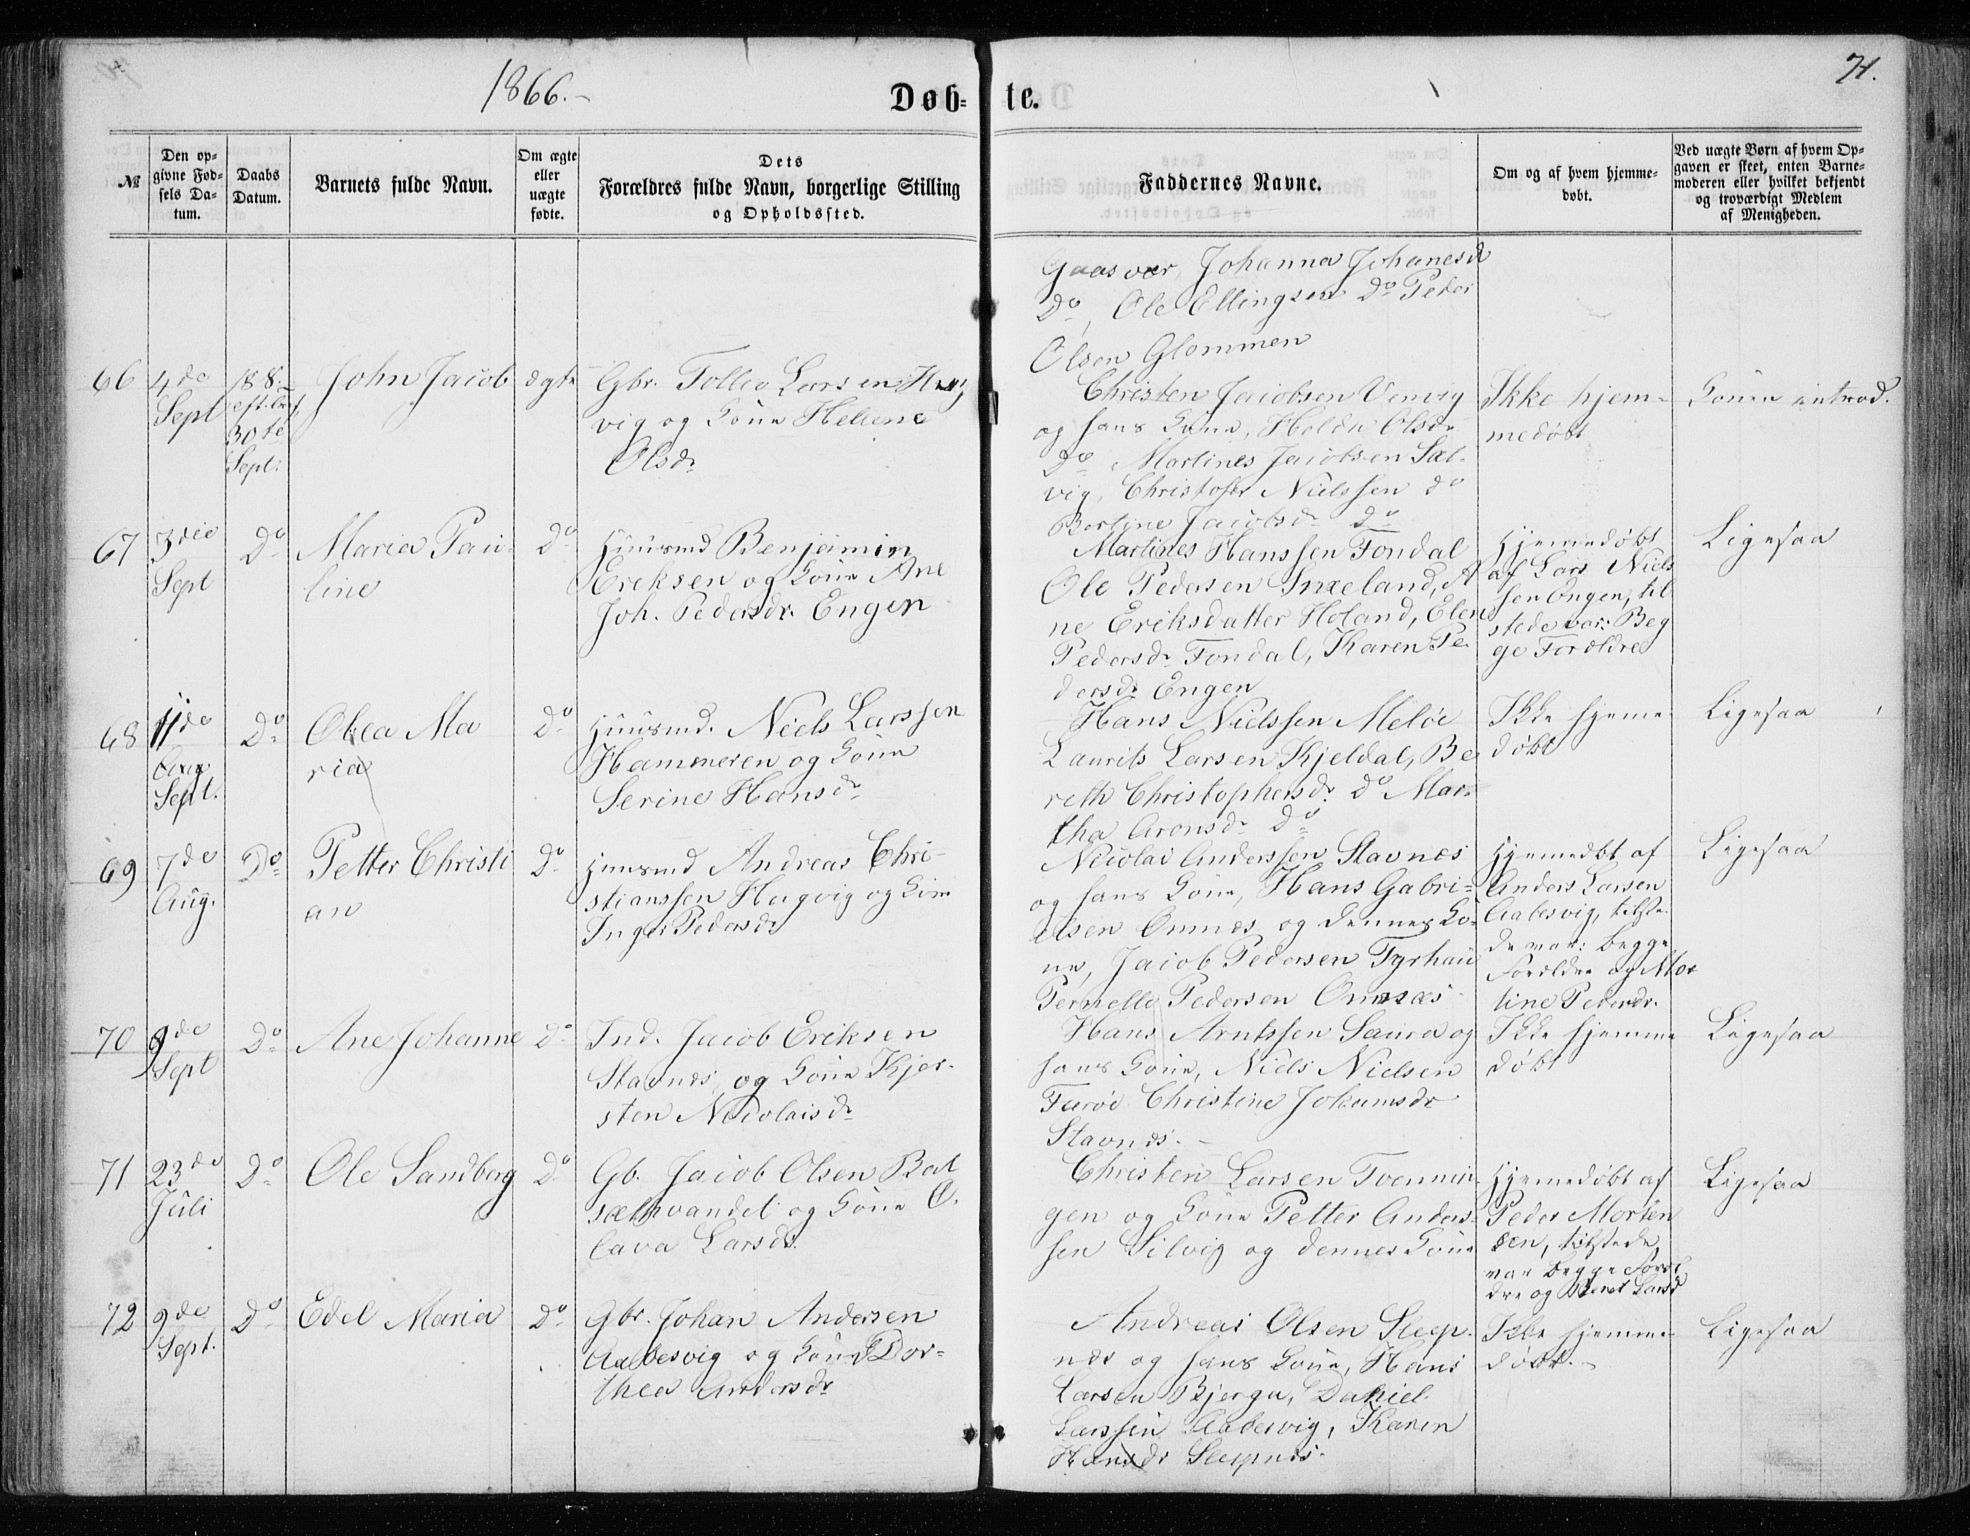 1866.-
Døb-
te.
71.
№
Den op-
givne Fød-
sels Da-
tum.
Daabs
Datum.
Barnets fulde Navn.
Om ægte
eller
uægte
fødte.
Dets
Forældres fulde Navn, borgerlige Stilling
og Opholdssted.
Faddernes Navne.
Om og af hvem hjemme-
døbt.
Ved uægte Børn af hvem Op-
gaven er skeet, enten Barne-
moderen eller hvilket bekjendt
og troværdigt Medlem
af Menigheden.
Gaasvær, Johanna Johanesd
Do, Ole Ellingsen Do Peter
Olsen Glommen
66
4de
Sept
30te
Sept:
John Jacob
ægte
Gbr. Tollev Larsen
vig og Kone Helene
Olsdr
Christen Jacobsen Venvig
og hans Kone, Olsdr
Do Martines Jacobsen Sæl-
vig, Christofer Nielssen do
Bertine Jacobsdr Do
Ikke hjem-
medøbt
Konen introd.
67
3die
Sept
Do
Maria Pau-
line
Do
Huusmd Benjamin
Eriksen og Kone Ane
Joh. Pedersdr. Engen
Martines Hanssen Fondal
Ole Pedersen Snæeland, A
ne Eriksdatter Holand, Elen
Pedersdr Fondal, Karen Pe-
dersdr Engen
Hjemedøbt
af Lars Niels
sen Engen, til
stede var: Beg
ge Forældre
Ligesaa
68
11de
Aug
Sept.
Do
Olea Ma
ria
Do
Huusmd. Niels Larssen
Hammeren og Kone
Serine Hansdr
Hans Nielssen Meløe
Laurits Larsen Kjeldal, Be
reth Christophersdr. Do Mar-
tha Aronsdr Do
Ikke hjeme
døbt
Ligesaa
69
7de
Aug.
Do
Petter Christi
an
Do
Huusmd Andreas Chri-
stianssen Hugvig og Kone
Inger Pedersdr
Nicolai Anderssen Stavnæs
og hans Kone, Hans Gabri-
elsen Ønnæs og dennes Ko-
ne, Jacob Pedersen
Pernelle Pedersen Ønnæs
Hjemedbt af
Anders Larsen
Aabesvig, tilste-
de var: begge
Forældre og Mar
tine Pedersdr.
Ligesaa
70
9de
Sept
Do
Ane Johanne
Do
Ind. Jacob Eriksen
Stavnæs, og Kone Kjer-
sten Nicolaisdr
Hans Arntssen Saura og
hans Kone, Niels Nielsen
Færøe Christine Jokumsdr
Stavnæs. -
Ikke hjemme
døbt
Ligesaa
71
23de
Juli
Do
Ole Sandberg
Do
Gb. Jacob Olsen Bat
sæthvandet og Kone O-
lava Larsdr.
Christen Larsen Tvennin-
gen og Kone Petter Anders-
sen Silvig og dennes Kone
Hjemedøbt af
Peder Morten
sen, tilstede
var begge Foræl
dre og Beret Larsd
Ligesaa
72
9de
Sept.
Do
Edel Maria
Do
Gbr. Johan Andersen
Aabesvig og Kone Dor-
thea Andersdr
Andreas Olsen Sleep-
næs og hans Kone, Hans
Larsen Bjerga, Daniel
Larssen Aabesvig, Karen
Hansdr Sleepnæs.
Ikke hjemme
døbt. -
Ligesaa